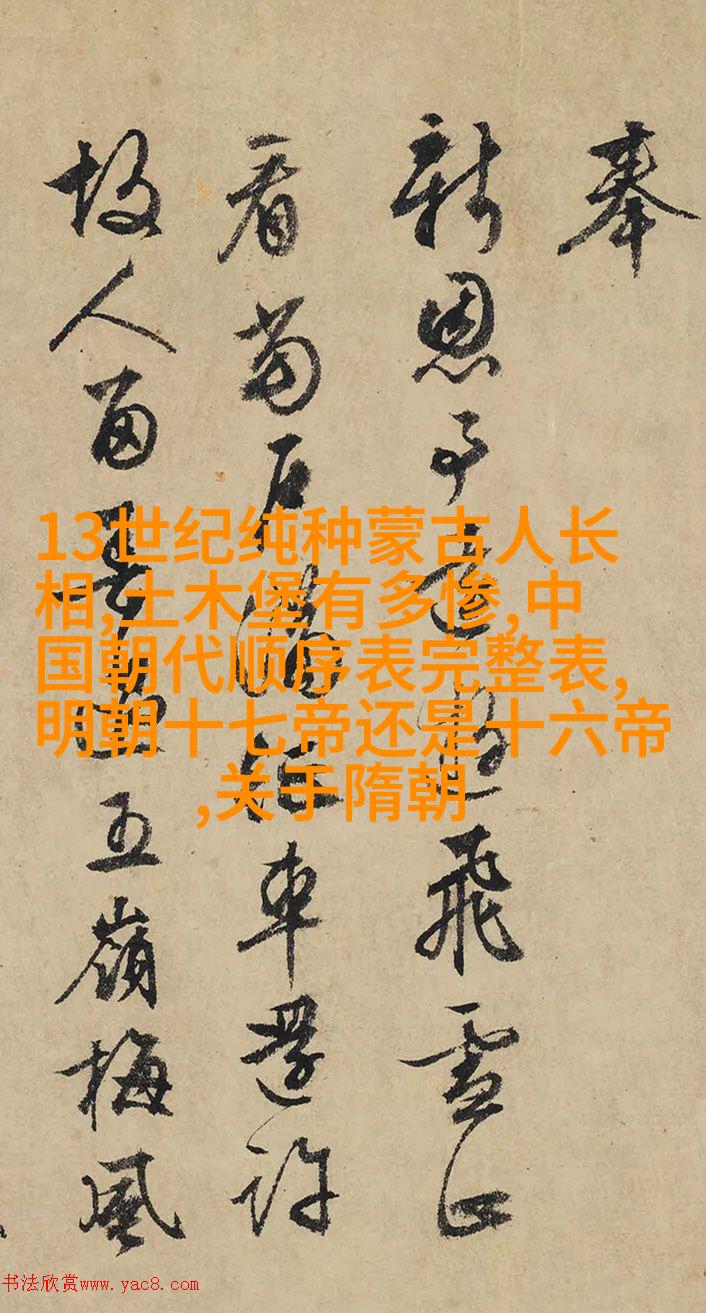 奉
新恩事遠遊飛雪正
看當戶滿行車還許
故人留五嶺梅風
13世纪纯种蒙古人长
相,土木堡有多惨,中
国朝代顺序表完整表,
明朝十七帝还是十六帝
,关于隋朝
书法欣赏www.yac8.com